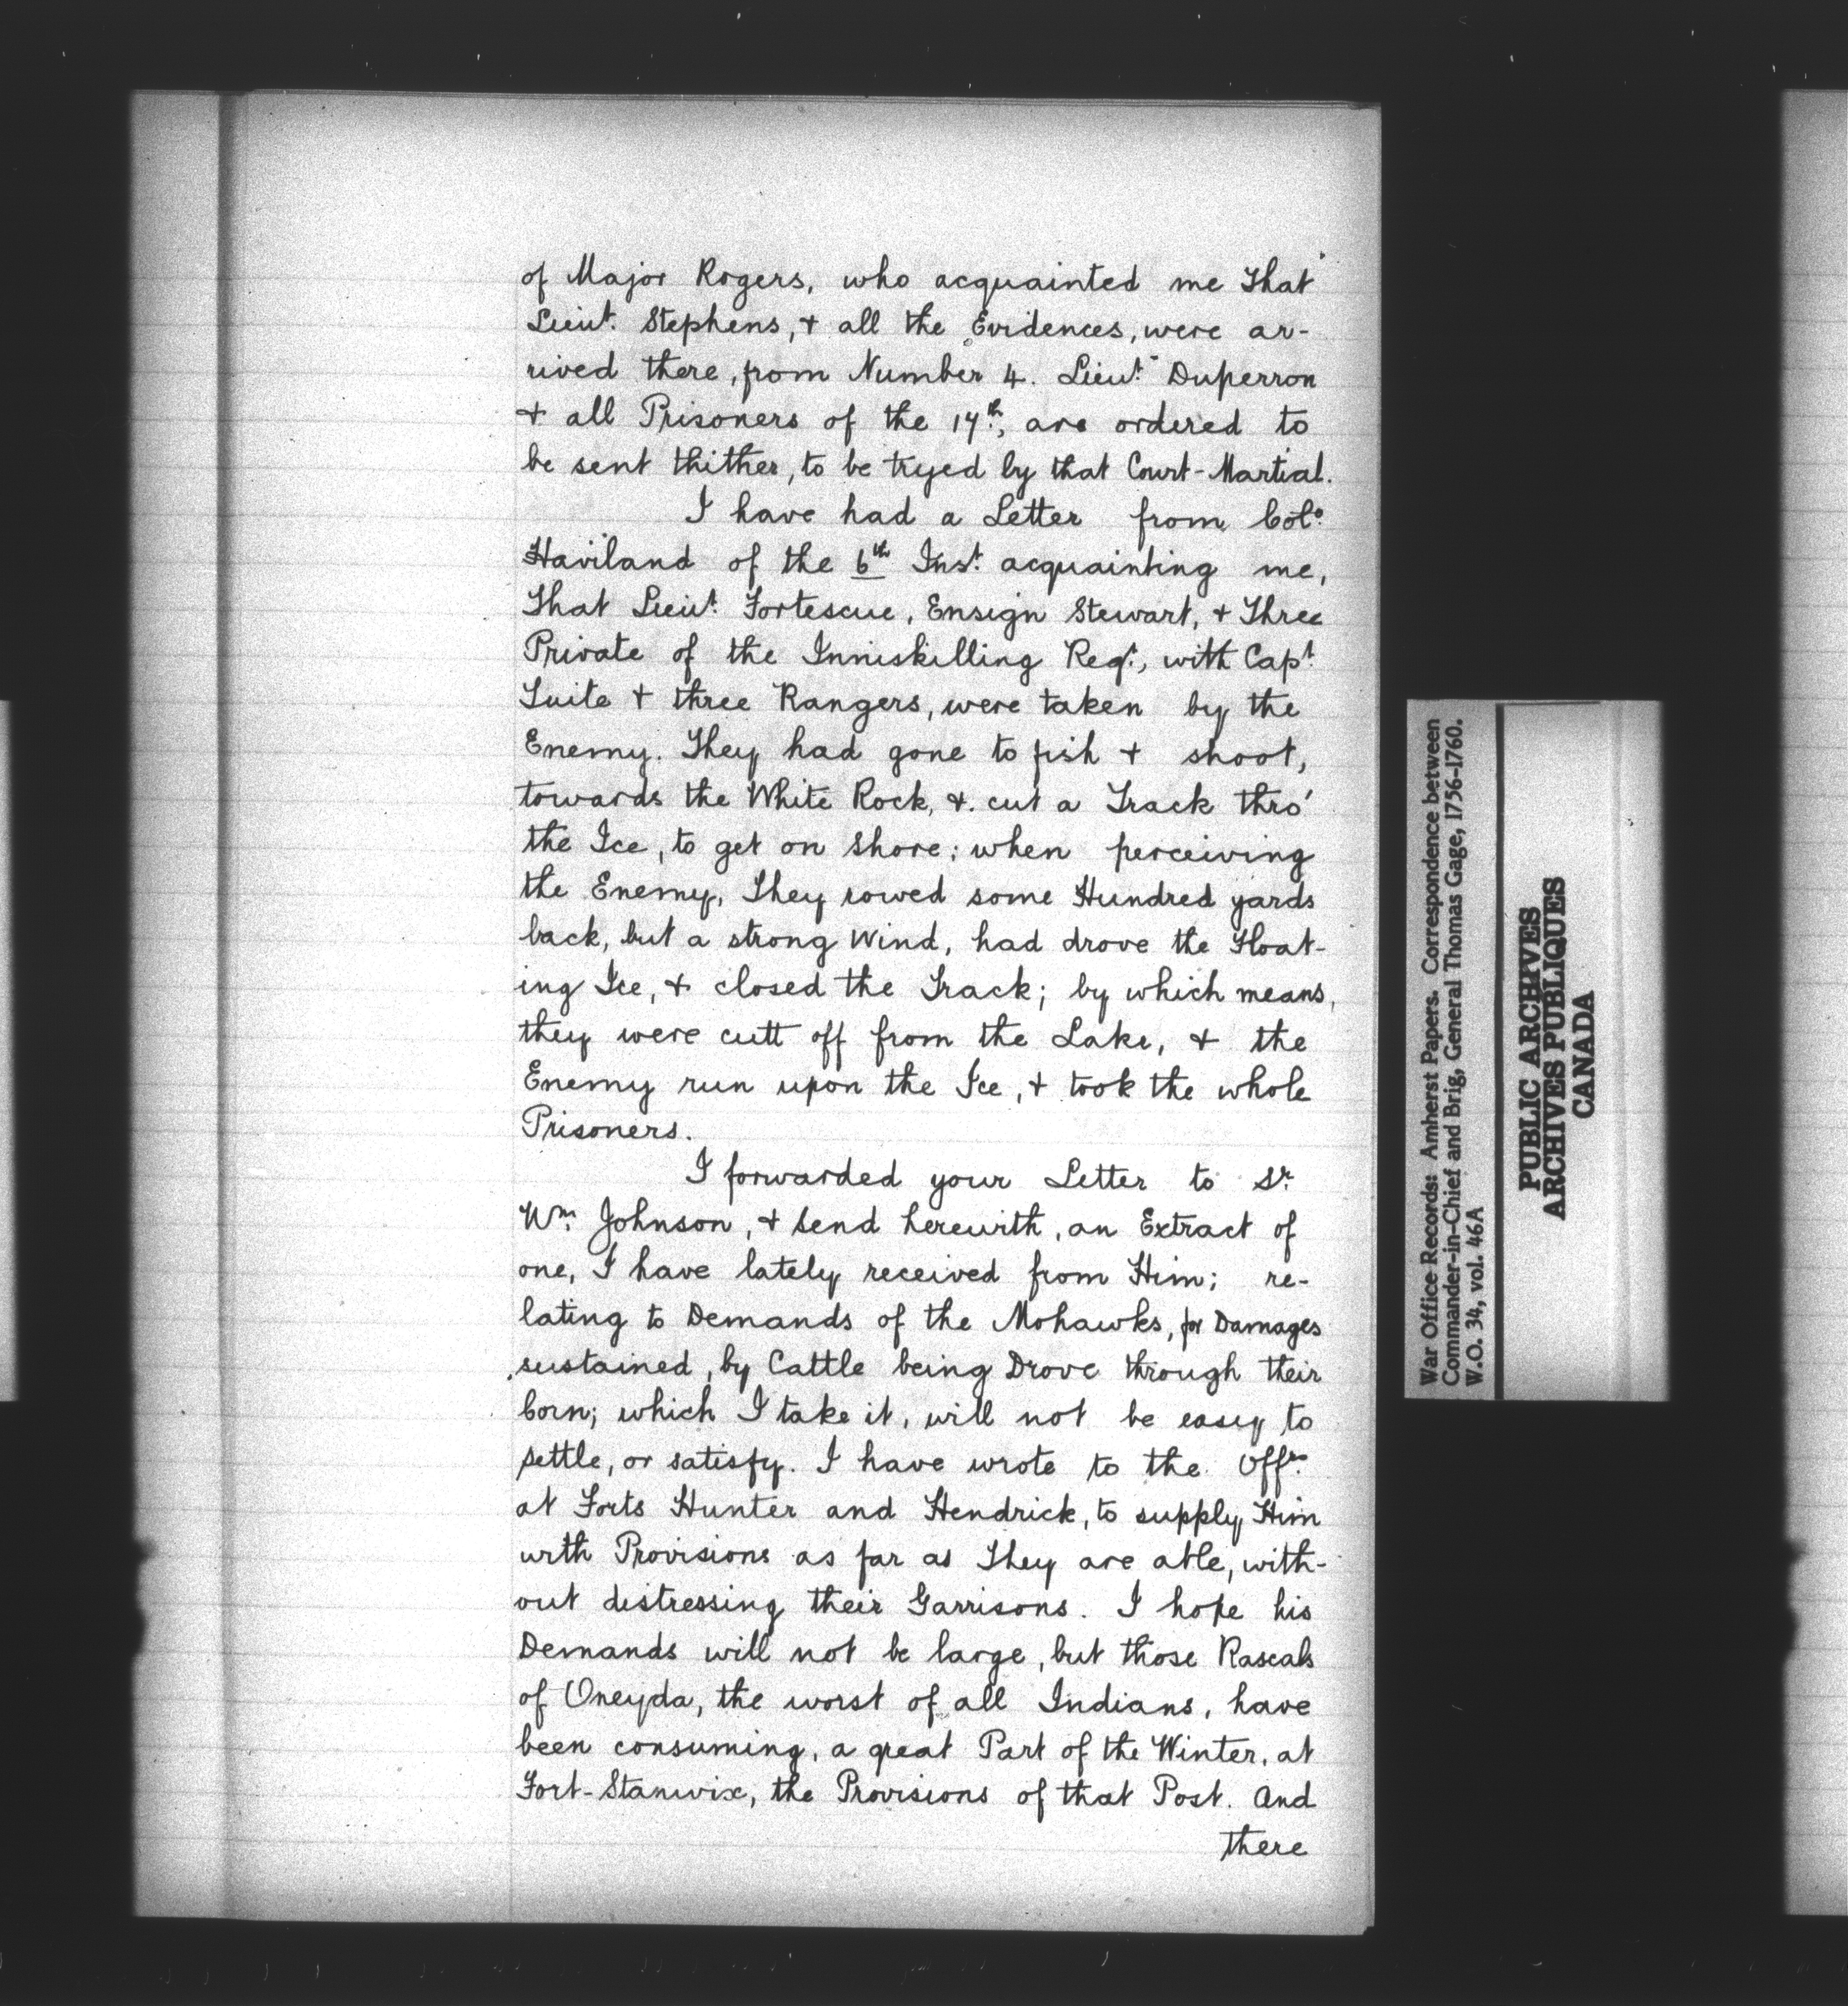 of Major Rogers, who acquainted me That
Lieut. Stephens, + all the Evidences, were ar-
rived there, from Number 4. Lieut. Duperron
+ all Prisoners of the 17th, are ordered to
be sent thither, to be tryed by that Court-Martial.
I have had a Letter from Colo.
Haviland of the 6th Inst. acquainting me,
That Lieut. Fortescue, Ensign Stewart, + Three
Private of the Inniskilling Regt., with Capt.
Tuite + three Rangers, were taken by the
Enemy. They had gone to fish + shoot,
towards the White Rock, +. cut a Track thro'
the Ice, to get on Shore; when perceiving
the Enemy, They rowed some Hundred yards
back, but a strong Wind, had drove the Float-
ing Ice, + closed the Track; by which means,
they were cutt off from the Lake, + the
Enemy run upon the Ice, + took the whole
Prisoners.
I forwarded your Letter to Sr.
Wm. Johnson, + send herewith, an Extract of
one, I have lately received from Him; re-
lating to Demands of the Mohawks, for Damages
sustained, by Cattle being Drove through their
Corn; which I take it, will not be easy to
settle, or satisfy. I have wrote to the Offrs.
at Forts Hunter and Hendrick, to supply Him
with Provisions as far as They are able, with-
out distressing their Garrisons. I hope his
Demands will not be large, but those Rascals
of Oneyda, the worst of all Indians, have
been consuming, a great Part of the Winter, at
Fort-Stanwix, the Provisions of that Post. And
there
War Office Records: Amherst Papers. Correspondence between
Commander-in-Chief and Brig, General Thomas Gage, 1756-1760.
W.O. 34, vol. 46A
PUBLIC ARCHIVES
ARCHIVES PUBLIQUES
CANADA